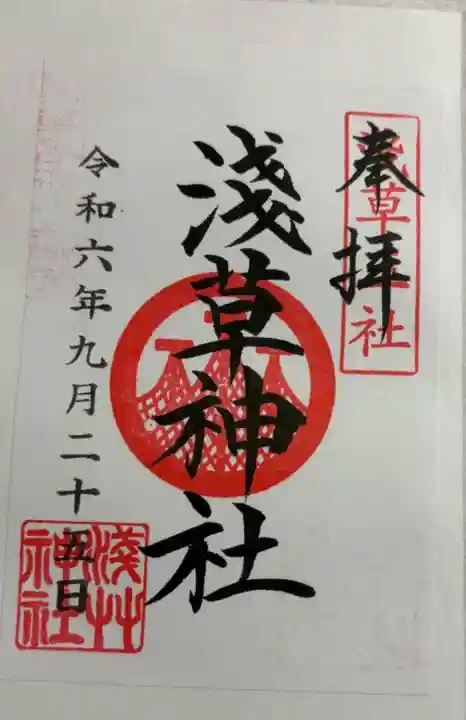 奉拝
淺草神社
淺草神社
令和六年九月二十五日
淺草神社